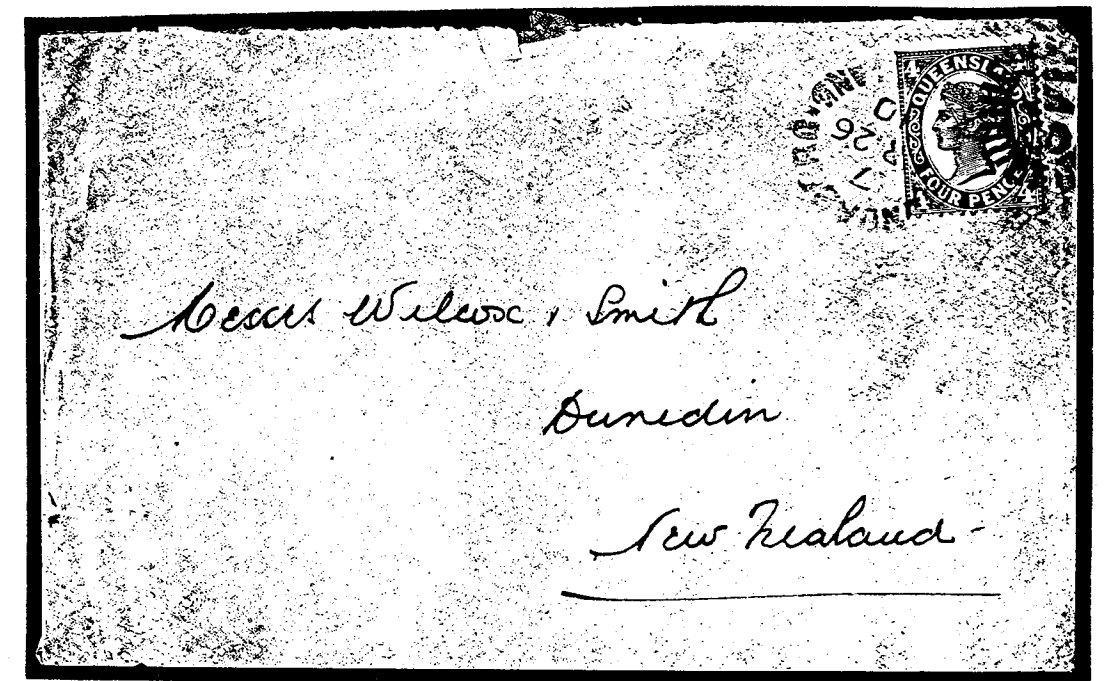 4 QUEENSLA
FOUR PENCE
4 4
D
26
7
Messrs Wilcox & Smith
Dunedin
New Zealand -